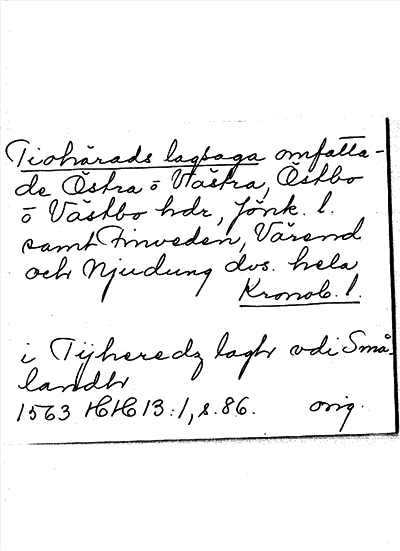 Tiohärads lagsaga omfatta-
de Östra o Västra, Östbo
o Västbo hdr, Jönk. l.
samt Finveden, Värend
och Njudung dvs. hela
Kronob. l.
i Tijheredz laghr vdi Små-
landhr
1563 HH 13:1, s. 86. orig.